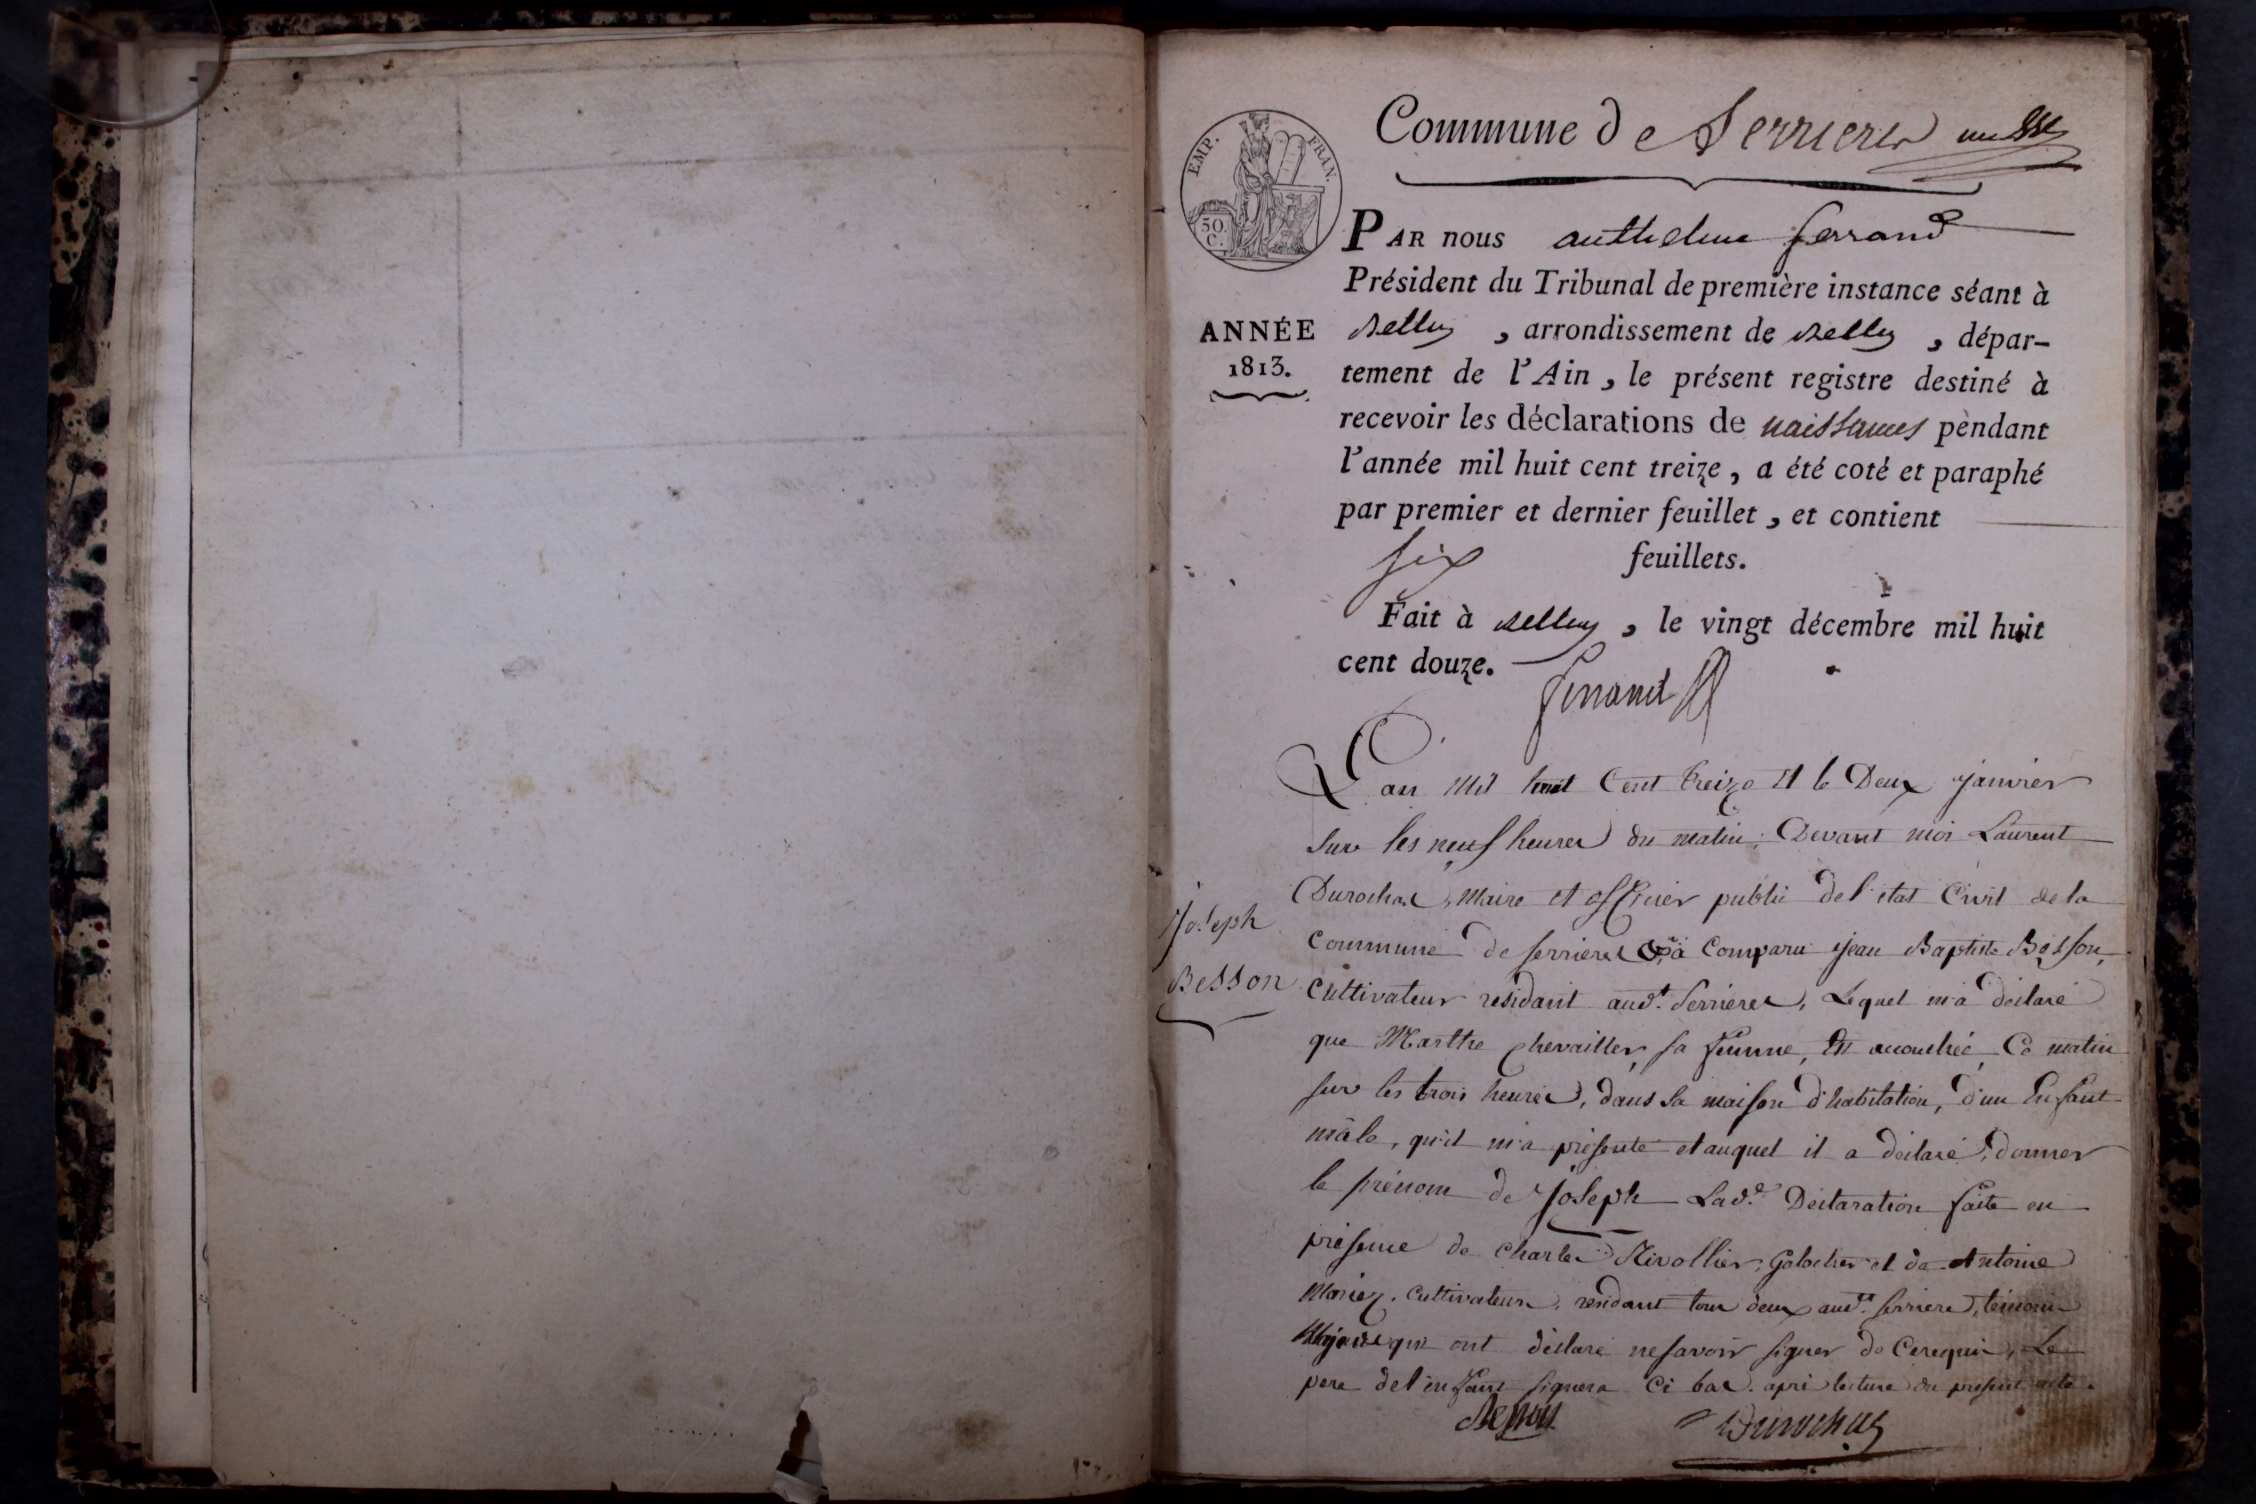 Commune de Serrieres
EMP. FRAN.
50.
C.
PAR nous anthelme ferrand
Président du Tribunal de première instance séant à
ANNÉE
1813.
Belley, arrondissement de Belley, dépar-
tement de l'Ain, le présent registre destiné à
recevoir les déclarations de naissances pendant
l'année mil huit cent treize, a été coté et paraphé
par premier et dernier feuillet, et contient
six feuillets.
Fait à Belley, le vingt décembre mil huit
cent douze.
ferrand
L'an Mil huit Cent treize et le Deux janvier
sur les neuf heures du matin, Devant moi Laurent
Durochat, Maire et officier public de l'etat Civil de la
Joseph
Besson
commune de serrieres a Comparu jean Baptiste Besson,
cultivateur residant aud.t Serrieres, Lequel m'a déclaré
que Marthe chevailler, sa femme, Est accouchée, Ce matin
sur les trois heures, dans sa maison d'habitation, d'un Enfant
mâle, qu'il m'a présenté et auquel il a déclaré, donner
le prénom de Joseph Lad.e Déclaration faite en
présence de Charles Rivollier, Galocher et de Antoine
Moriez, Cultivateur, résidant tous deux aud.t serrieres, témoins
Majeurs qui ont déclaré ne savoir signer de Ce requis, Le
pere de l'enfant signera Ci bas. apres lecture du présent acte.
Besson Durochat